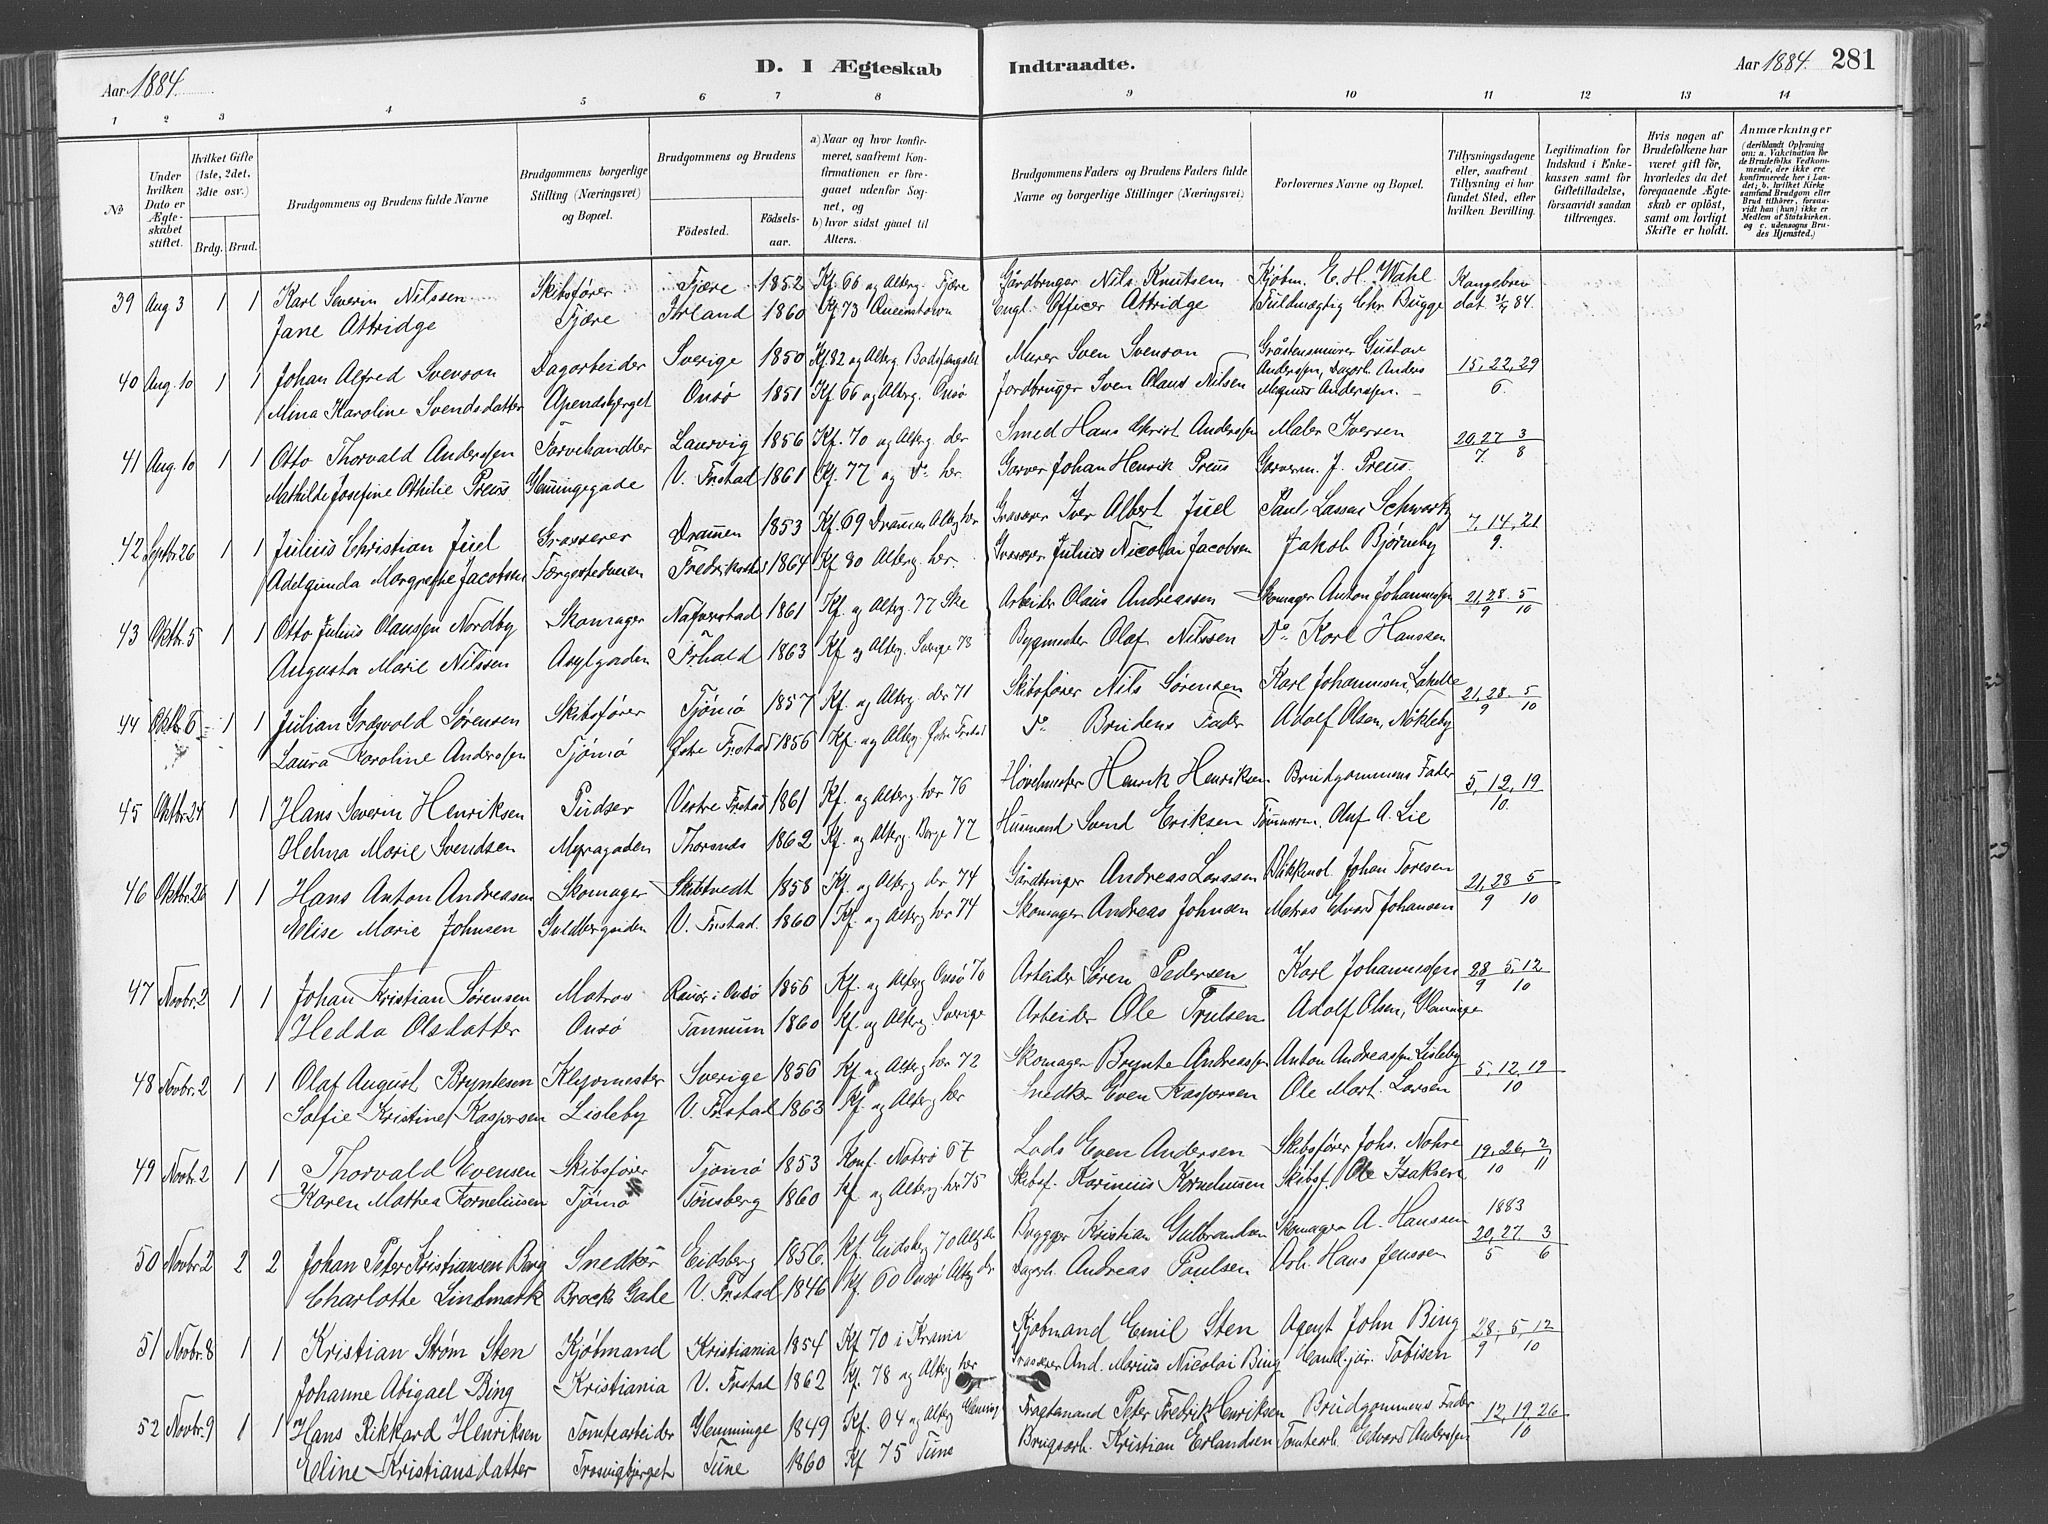 Aar 1884.
D. I Ægteskab Indtraadte.
Aar 1884. 281
1 2 3 4 5 6 7 8 9 10 11 12 13 14
№
Under hvilken Dato er Ægteskabet stiftet.
Hvilket Gifte (1ste, 2det, 3die osv.)
Brdg. Brud.
Brudgommens og Brudens fulde Navne
Brudgommens borgerlige Stilling (Næringsvei) og Bopæl.
Brudgommens og Brudens
Fødested. Fødselsaar.
a) Naar og hvor konfirmeret, saafremt Konfirmationen er foregaaet udenfor Sognet, og
b) hvor sidst gaaet til Alters.
Brudgommens Faders og Brudens Faders fulde Navne og borgerlige Stillinger (Næringsvei)
Forlovernes Navne og Bopæl.
Tillysningsdagene eller, saafremt Tillysning ei har fundet Sted, efter hvilken Bevilling.
Legitimation for Indskud i Enkekassen samt for Giftetilladelse, forsaavidt saadan tiltrænges.
Hvis nogen af Brudefolkene har været gift før, hvorledes da det foregaaende Ægteskab er opløst, samt om lovligt Skifte er holdt.
Anmærkninger (deriblandt Oplysning om: a. Vakcination for de Brudefolks Vedkommende, der ikke ere konfirmerede her i Landet; b. hvilket Kirkesamfund Brudgom eller Brud tilhører, forsaavidt han (hun) ikke er Medlem af Statskirken. og c. udensogns Brudes Hjemsted.)
39 Aug 3 1 1 Karl Severin Nilssen Skibsfører Tjære 1852 Kf. 66 og Alterg. Tjære Gårdbruger Nils Knutsen Kjøbm. E. H. Wahl Kongebrev
Jane Attridge Tjære Irland 1860 Kf 73 Queenstown Engl. Officer Attridge Fuldmægtig Chr. Bugge dat 84.
40 Aug. 10 1 1 Johan Alfred Svenson Dagarbeider Sverige 1850 Kf 82 og Alterg. Bodsfængslet Murer Sven Svenson Gråstensmurer Gustav 15, 22, 29
Mina Karoline Svendsdatter Apendsbjerget Onsö 1851 Kf. 66 og Alterg. Onsö Jordbruger Sven Olaus Nilsen Anderssen, Dagarb. Anders Magnus Anderssen. 6.
41 Aug. 10 1 1 Otto Thorvald Anderssen Farvehandler Laurvig 1856 Kf. 70 og Alterg. der Smed Hans Christ Anderssen Maler Iversen 20, 27 3
Mathilde Josefine Othilie Preus Glemmingegade V. Frstad 1861 Kf. 77 og do her. Garver Johan Henrik Preus Garverm. J. Preus. 7. 8
42 Septbr. 26 1 1 Julius Christian Juel Grosserer Drammen 1853 Kf. 69 Drammen Alterg her Grosserer Iver Albert Juel Paul Lassen Schwartz 7, 14, 21
Adelgunda Margrethe Jacobsen Færgestedveien Fredriksstad 1864 Kf. 80 Alterg. her. Grosserer Julius Nicolai Jacobsen Jakob Bjørneby 9.
43 Oktbr. 5 1 1 Otto Julius Olaussen Nordby Skomager Nafverstad 1861 Kf. og Alterg. 77 Ske Arbeider Olaus Andreassen Skomager Anton Johannessen 21, 28 5
Augusta Marie Nilssen Asylgaden Frhald 1863 Kf og Alterg. Sverige 78 Bygmester Olaf Nilssen Do Karl Hanssen 9 10
44 Oktbr. 5 1 1 Julian Gregvold Sørensen Skibsfører Tjömö 1857 Kf. og Alterg. der 71 Skibsfører Nils Sørensen Karl Johannesen, 21, 28 5
Laura Karoline Anderssen Tjömö Östre Frstad 1856 Kf. og Alterg. Östre Frstad Do Brudens Fader Adolf Olsen, Nökleby 9 10
45 Oktbr. 24 1 1 Hans Severin Henriksen Pudser Vestre Frstad 1861 Kf. og Alterg. her 76 Hövelmester Henrik Henriksen Brudgommens Fader 5, 12, 19
Helma Marie Svendsen Myragaden Thorsnes 1862 Kf. og Alterg. Borge 77 Husmand Svend Eriksen Tömmerm. Oluf A. Lie 10.
46 Oktbr. 26 1 1 Hans Anton Andreasen Skomager Skibtvedt 1858 Kf. og Alterg der 74 Gårdbruger Andreas Larssen Johan Toresen 21, 28 5
Elise Marie Johnsen Guldbergsiden V. Frstad. 1860 Kf. og Alterg her 74 Skomager Andreas Johnsen Matros Edvard Johansen 9 10
47 Novbr. 2 1 1 Johan Kristian Sørensen Matros Rauör i Onsö 1856 Kf. og Alterg Onsö 70 Arbeider Søren Pedersen Karl Johannessen 28 5, 12
Hedda Olsdatter Onsö Tannum 1860 Kf. og Alterg. Sverige Arbeider Ole Trulsen Adolf Olsen, Glemminge 9 10
48 Novbr. 2 1 1 Olaf August Bryntesen Klypmester Sverige 1856 Kf. og Alterg her 72 Skomager Brynte Andreassen Anton Andreassen Lisleby 5, 12, 19
Sofie Kristine Kaspersen Lisleby V. Frstad 1863 Kf. og Alterg her Snedker Even Kaspersen Ole Mart. Larsen 10
49 Novbr. 2 1 1 Thorvald Evensen Skibsfører Tjömö 1853 Konf. Nøterö 67 Lods Even Andersen Skibsfører Johs. Nohre 19, 26, 2
Karen Mathea Korneliussen Tjömö Tönsberg 1860 Kf og Alterg her 75 Skibsf. Karinius Korneliussen Skibsf. Ole Isaksen 10 11
50 Novbr. 2 2 2 Johan Peter Kristiansen Berg Snedker Eidsberg 1856. Kf. Eidsberg 70 Alterg der Bygger Kristian Gulbrandsen Skomager A. Hanssen 1883 20, 27 3
Charlotte Lindmark Brocks Gade V. Frstad 1846 Kf. 60 Onsö Alterg der Dagarb. Andreas Paulsen Arb. Hans Jenssen 5 6
51 Novbr. 8 1 1 Kristian Strøm Sten Kjöbmand Kristiania 1854 Kf 70 i Krania Kjöbmand Emil Sten Agent John Bing 28, 5, 12
Johanne Abigael Bing Kristiania V. Frstad 1862 Kf. 78 og Alterg her Grosserer And. Marius Nicolai Bing Cand. jur. Tobisen 9 10
52 Novbr. 9 1 1 Hans Rikkard Henriksen Tomtearbeider Glemminge 1849 Kf. 64 og Alterg Glemming Fragtemand Peter Fredrik Henriksen Brudgommens Fader 12, 19, 26
Eline Kristiansdatter Trosvigbjerget Tune 1860 Kf 75 Tune Brugsarb. Kristian Erlandsen Tomtearb. Edvard Anderssen 10